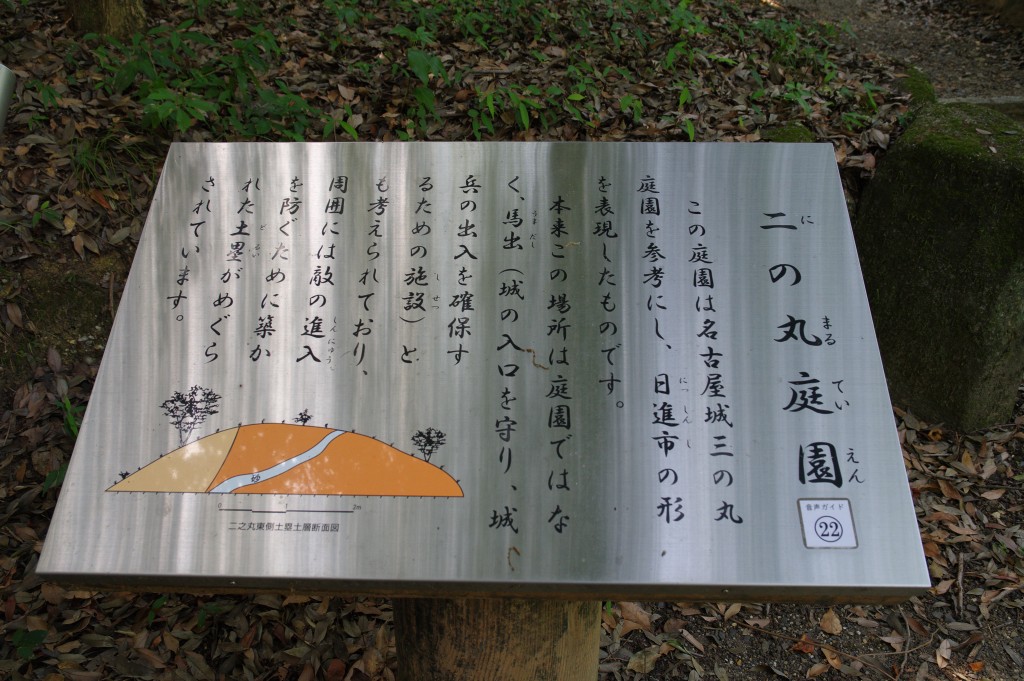 二の丸庭園
に まる てい えん
この庭園は名古屋城三の丸
庭園を参考にし、日進市の形
にっしんし
を表現したものです。
本来この場所は庭園ではな
く、馬出（城の入口を守り、城
うまだし
兵の出入を確保す
るための施設）と
しせつ
も考えられており、
周囲には敵の進入
しんにゅう
を防ぐために築か
れた土塁がめぐら
どるい
されています。
音声ガイド
22
砂
0 1 2m
二之丸東側土塁土層断面図